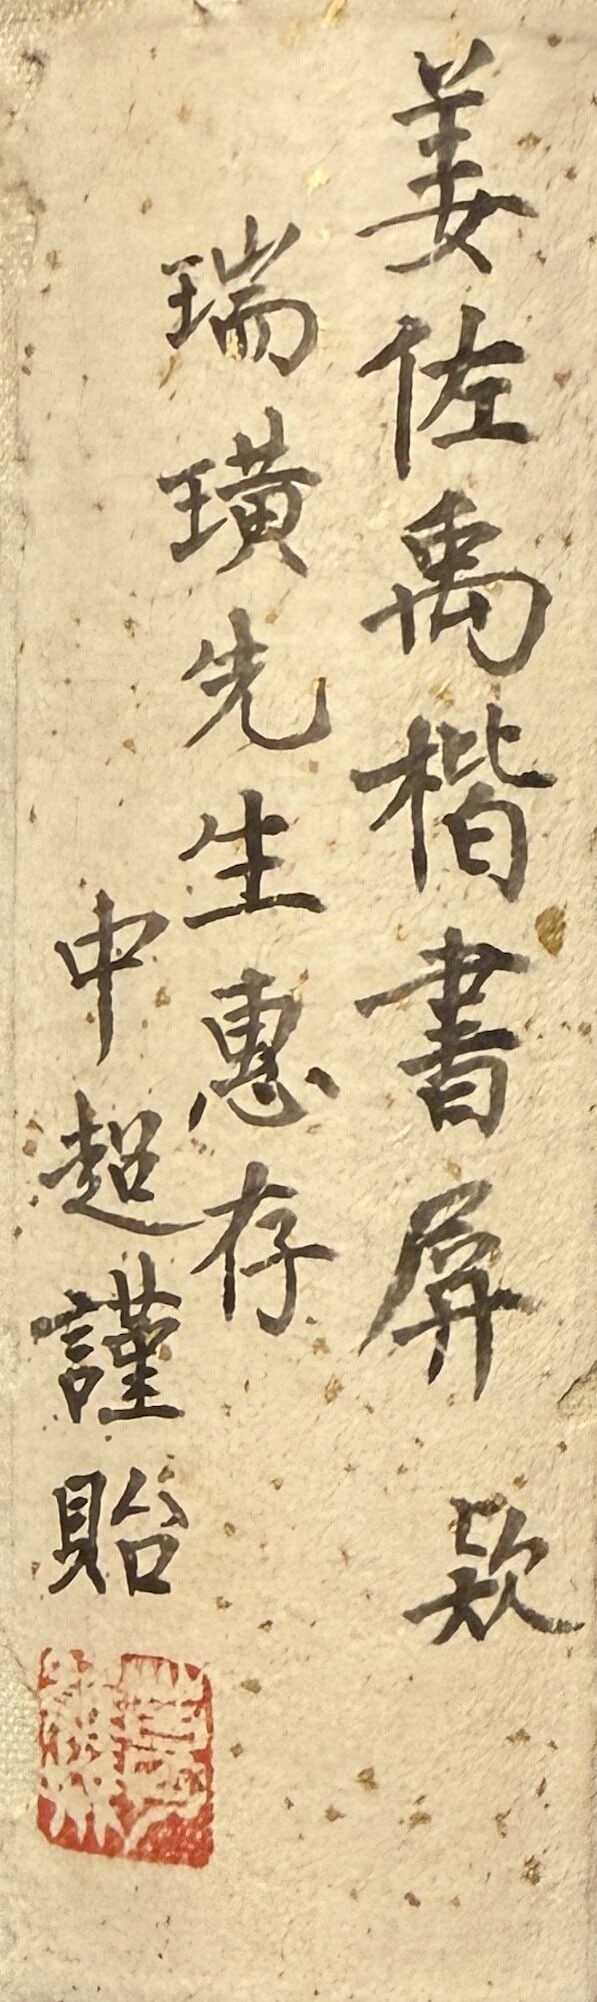 姜佐禹楷書屏 欵
瑞璜先生惠存
中超謹貽